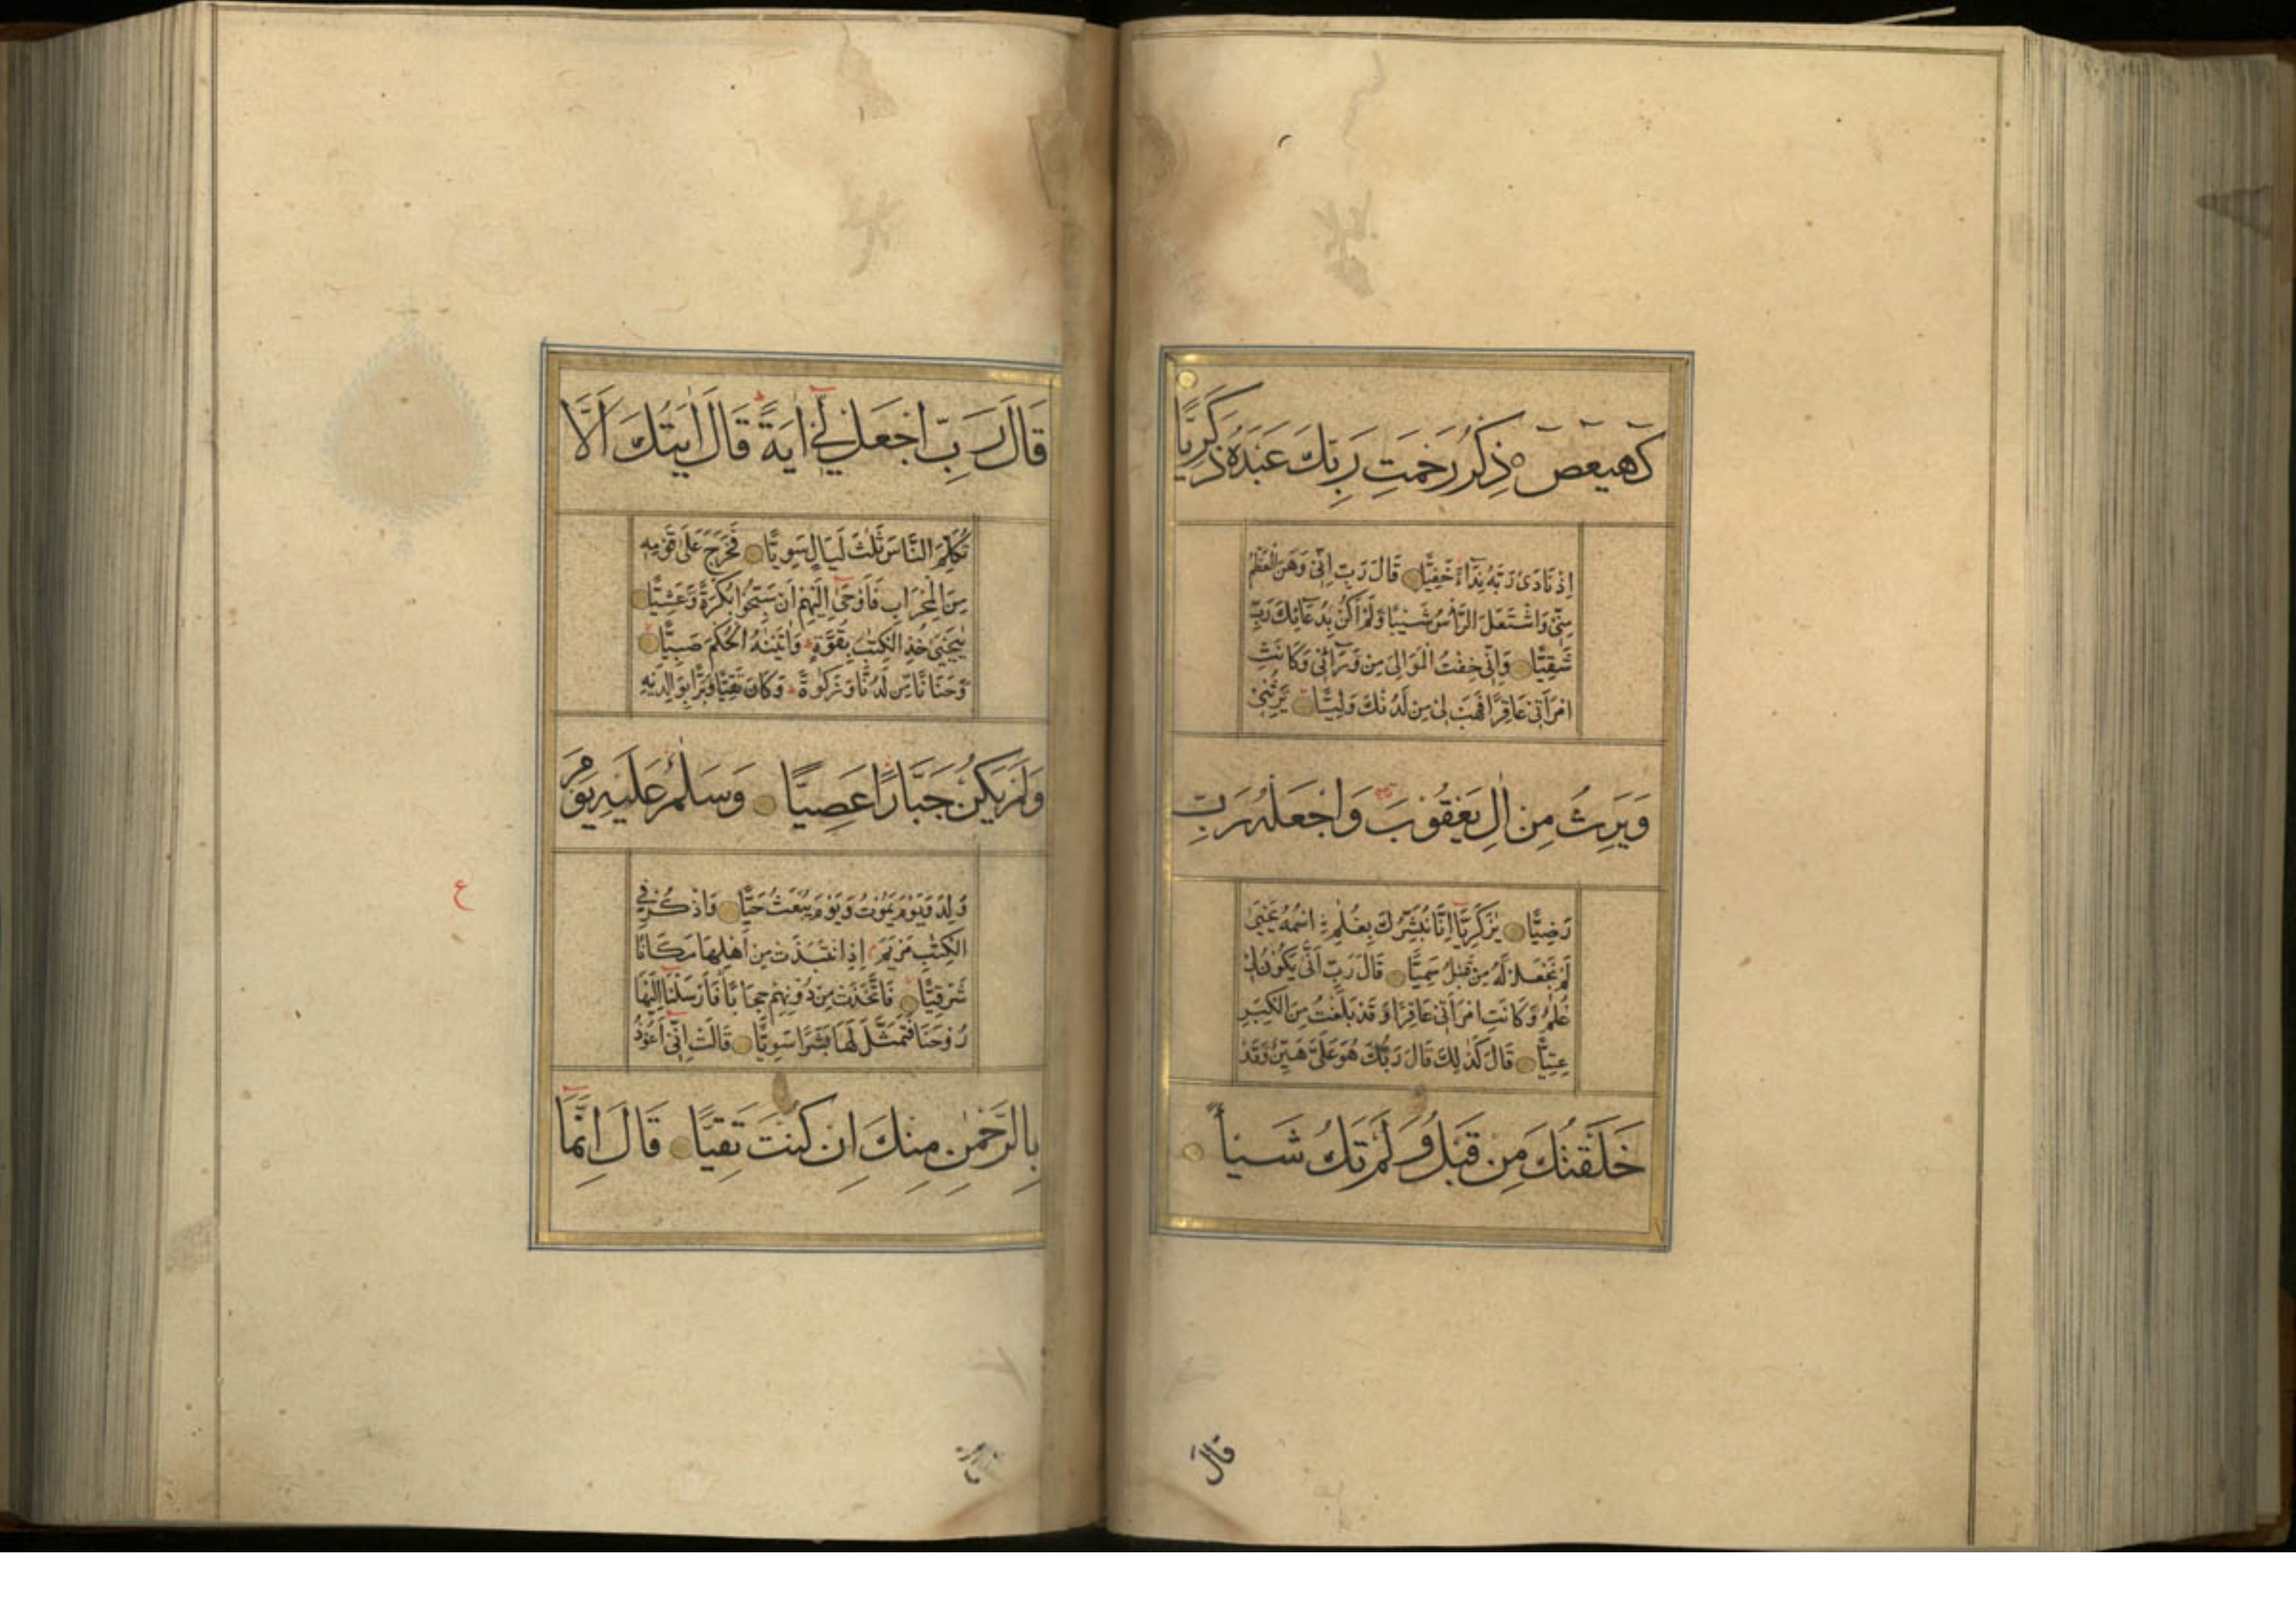 كهيعص ذِكْرُ رَحْمَتِ رَبِّكَ عَبْدَهُ زَكَرِيَّا
اِذْ نَادٰى رَبَّهُ نِدَآءً خَفِيًّا قَالَ رَبِّ اِنِّىْ وَهَنَ الْعَظْمُ
مِنِّىْ وَاشْتَعَلَ الرَّأْسُ شَيْبًا وَّلَمْ اَكُنْ بِدُعَآئِكَ رَبِّ
شَقِيًّا وَاِنِّىْ خِفْتُ الْمَوَالِىَ مِنْ وَّرَآئِىْ وَكَانَتِ
امْرَاَتِىْ عَاقِرًا فَهَبْ لِىْ مِنْ لَّدُنْكَ وَلِيًّا يَّرِثُنِىْ
وَيَرِثُ مِنْ اٰلِ يَعْقُوْبَ وَاجْعَلْهُ رَبِّ
رَضِيًّا يٰزَكَرِيَّآ اِنَّا نُبَشِّرُكَ بِغُلٰمِ اسْمُهُ يَحْيٰى
لَمْ نَجْعَلْ لَّهُ مِنْ قَبْلُ سَمِيًّا قَالَ رَبِّ اَنّٰى يَكُوْنُ لِىْ
غُلٰمٌ وَّكَانَتِ امْرَاَتِىْ عَاقِرًا وَّقَدْ بَلَغْتُ مِنَ الْكِبَرِ
عِتِيًّا قَالَ كَذٰلِكَ قَالَ رَبُّكَ هُوَ عَلَىَّ هَيِّنٌ وَّقَدْ
خَلَقْتُكَ مِنْ قَبْلُ وَلَمْ تَكُ شَيْأً
قَالَ
قَالَ رَبِّ اجْعَلْ لِّىْٓ اٰيَةً قَالَ اٰيَتُكَ اَلَّا
تُكَلِّمَ النَّاسَ ثَلٰثَ لَيَالٍ سَوِيًّا فَخَرَجَ عَلٰى قَوْمِهِ
مِنَ الْمِحْرَابِ فَاَوْحٰٓى اِلَيْهِمْ اَنْ سَبِّحُوْا بُكْرَةً وَّعَشِيًّا
يٰيَحْيٰى خُذِ الْكِتٰبَ بِقُوَّةٍ وَاٰتَيْنٰهُ الْحُكْمَ صَبِيًّا
وَّحَنَانًا مِّنْ لَّدُنَّا وَزَكٰوةً وَكَانَ تَقِيًّا وَّبَرًّا بِوَالِدَيْهِ
وَلَمْ يَكُنْ جَبَّارًا عَصِيًّا وَسَلٰمٌ عَلَيْهِ يَوْمَ
وُلِدَ وَيَوْمَ يَمُوْتُ وَيَوْمَ يُبْعَثُ حَيًّا وَاذْكُرْ فِى
الْكِتٰبِ مَرْيَمَ اِذِ انْتَبَذَتْ مِنْ اَهْلِهَا مَكَانًا
شَرْقِيًّا فَاتَّخَذَتْ مِنْ دُوْنِهِمْ حِجَابًا فَاَرْسَلْنَآ اِلَيْهَا
رُوْحَنَا فَتَمَثَّلَ لَهَا بَشَرًا سَوِيًّا قَالَتْ اِنِّىْٓ اَعُوْذُ
بِالرَّحْمٰنِ مِنْكَ اِنْ كُنْتَ تَقِيًّا قَالَ اِنَّمَآ
ع